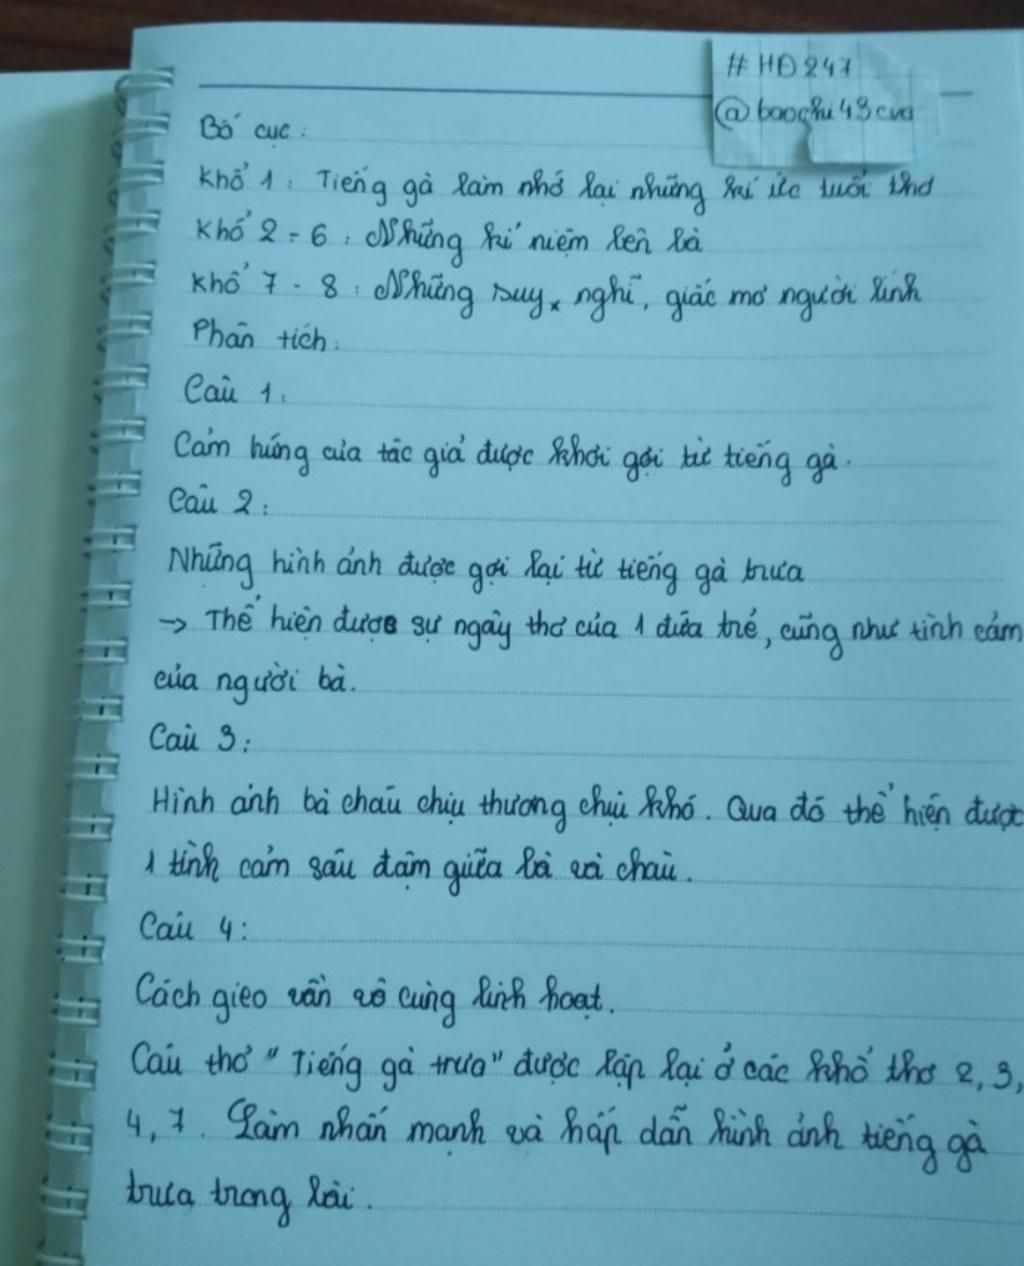 #HĐ247
@baochu43cva
Bố cục:
Khổ 1: Tiếng gà làm nhớ lại những kí ức tuổi thơ
Khổ 2-6: Những kỉ niệm bên bà
Khổ 7-8: Những suy nghĩ, giấc mơ người lính
Phân tích:
Câu 1:
Cảm hứng của tác giả được khơi gợi từ tiếng gà.
Câu 2:
Những hình ảnh được gợi lại từ tiếng gà trưa
→ Thể hiện được sự ngây thơ của 1 đứa trẻ, cũng như tình cảm
của người bà.
Câu 3:
Hình ảnh bà cháu chịu thương chịu khó. Qua đó thể hiện được
1 tình cảm sâu đậm giữa bà và cháu.
Câu 4:
Cách gieo vần vô cùng linh hoạt.
Câu thơ "Tiếng gà trưa" được lặp lại ở các khổ thơ 2, 3,
4, 7. Làm nhấn mạnh và hấp dẫn hình ảnh tiếng gà
trưa trong bài.